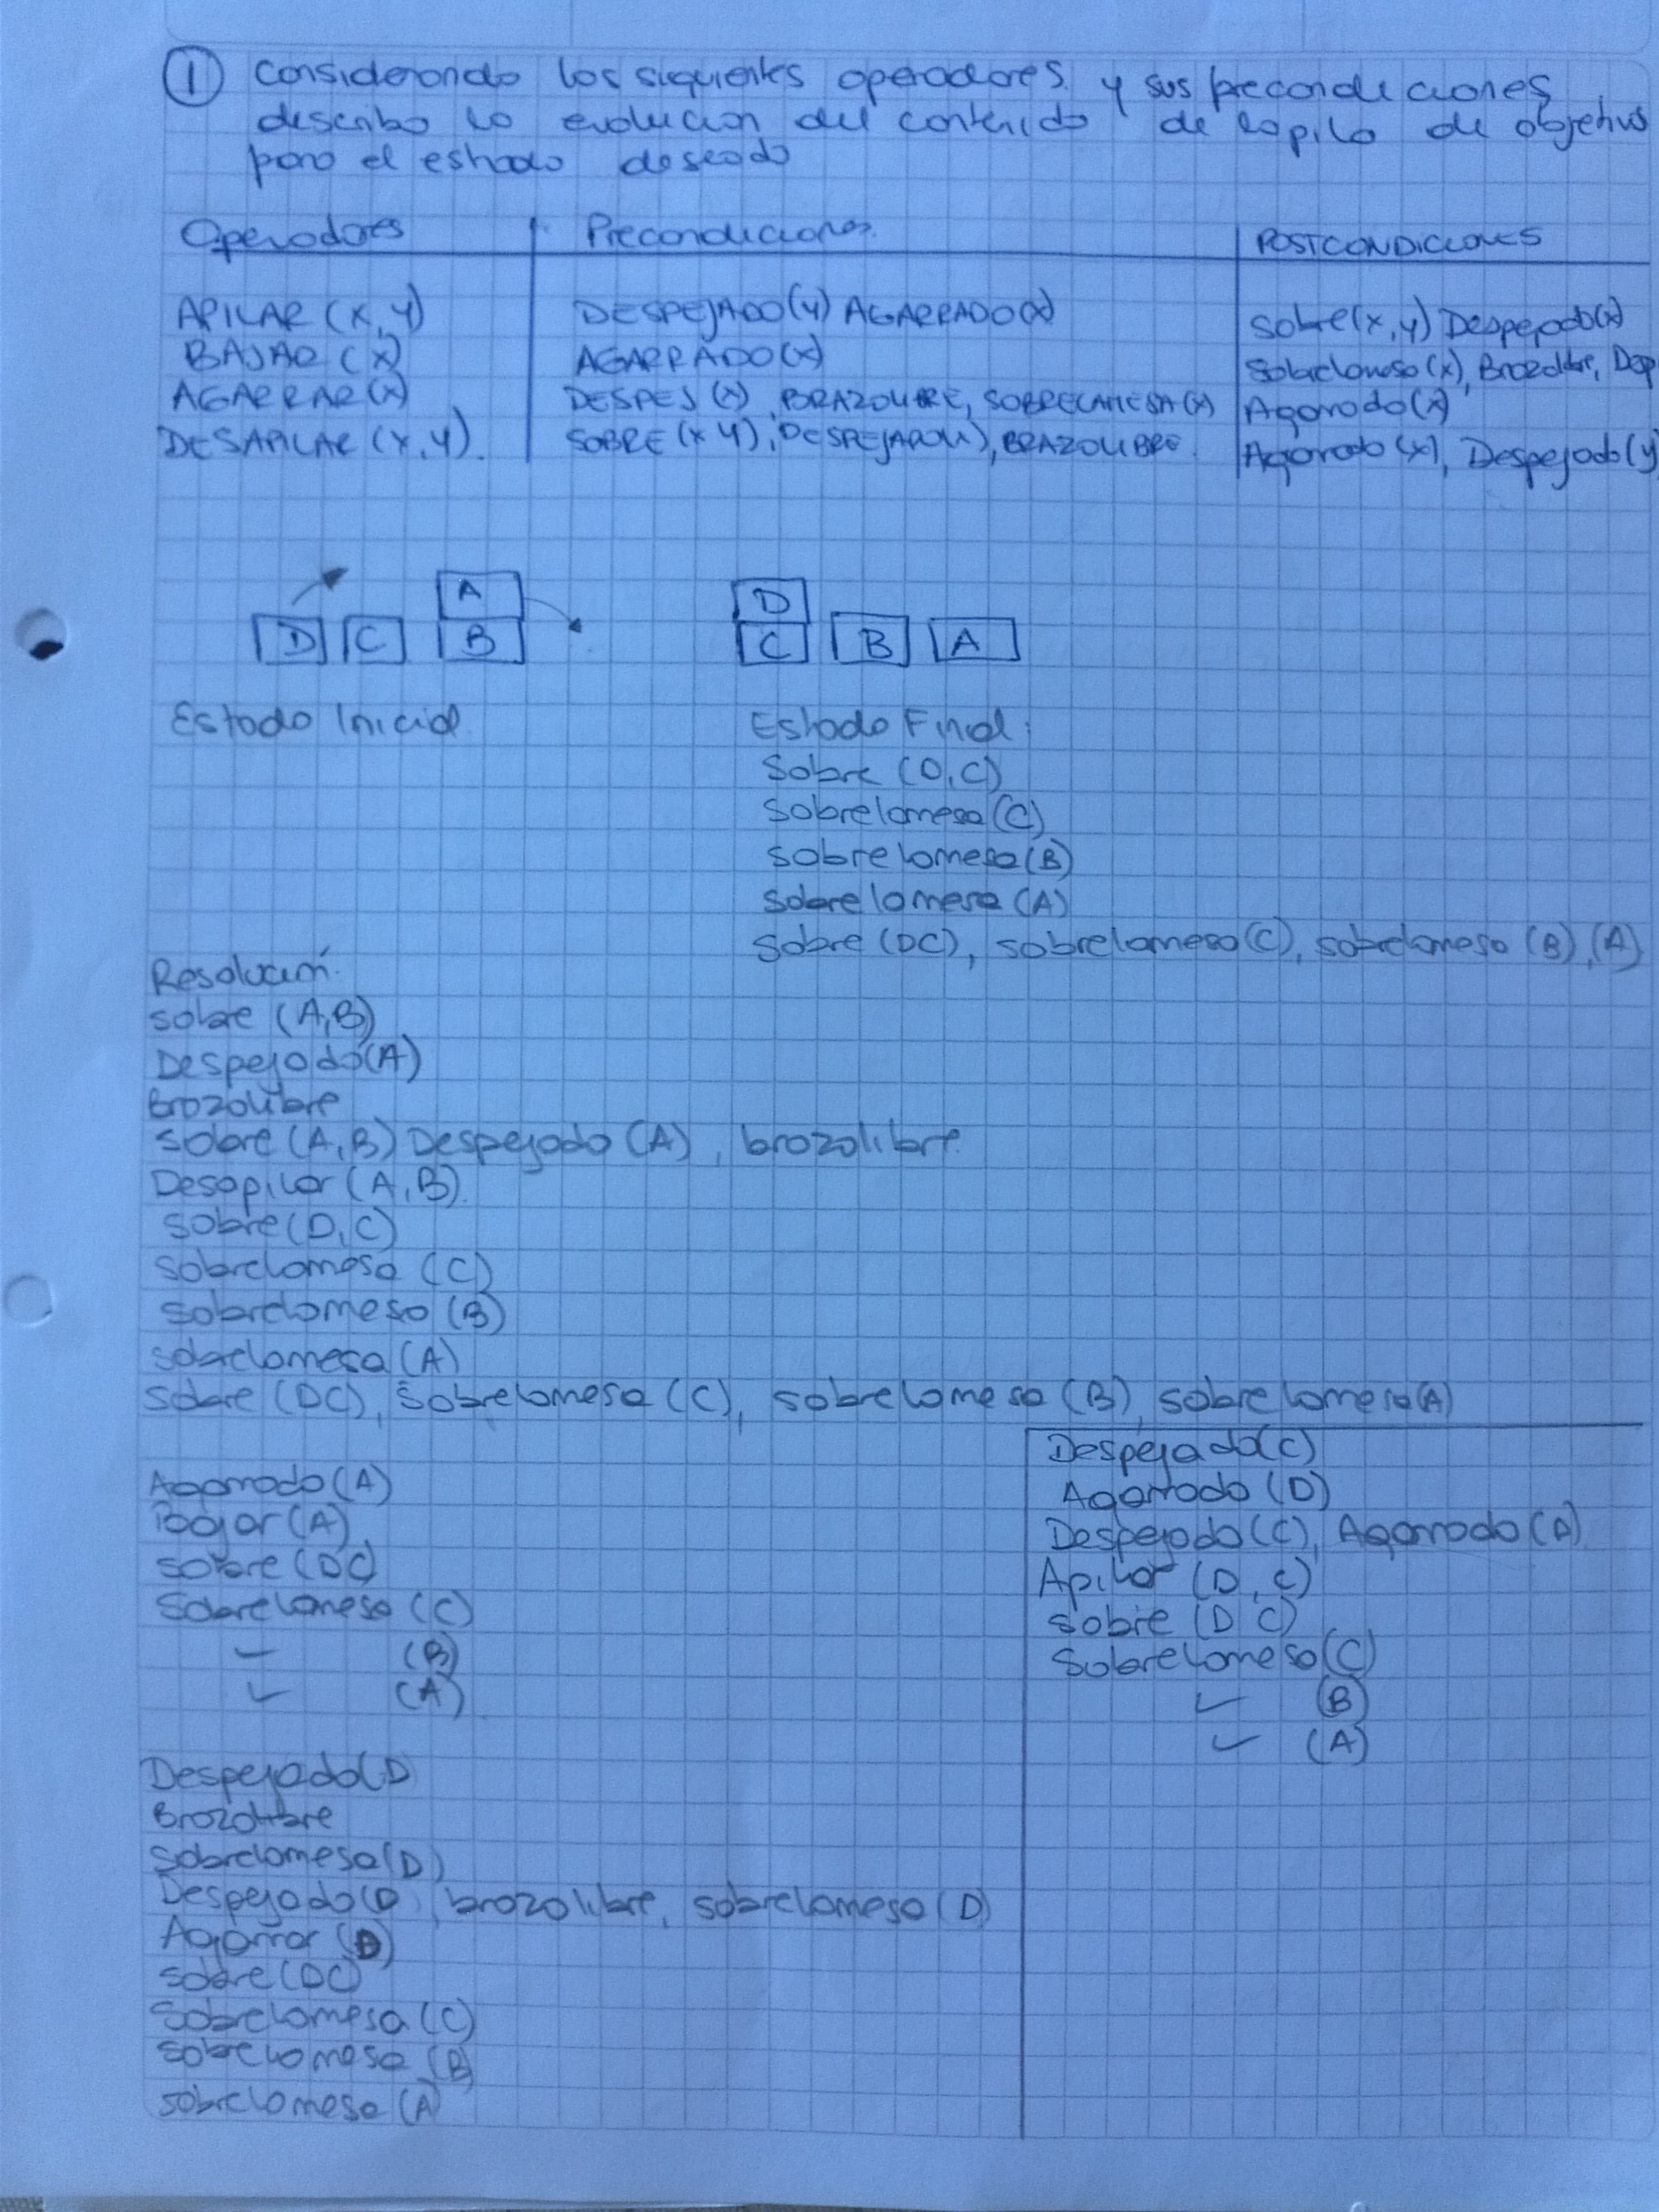 1 Considerando los siguientes operadores y sus precondiciones
describo la evolucion del contenido de la pila de objetivo
para el estado deseado
Operadores Precondiciones POSTCONDICIONES
APILAR (X, Y) DESPEJADO(Y) AGARRADO(X) Sobre(x, y) Despejado(x)
BAJAR (X) AGARRADO(X) Sobrelamesa(x), Brazolibre, Desp
AGARRAR(X) DESPEJ (X), BRAZOLIBRE, SOBRELAMESA(X) Agarrado(x)
DESAPILAR (X, Y). SOBRE (X Y), DESPEJADO(X), BRAZOLIBRE. Agarrado(x), Despejado(y)
D C A B D C B A
Estado Inicial. Estado Final:
Sobre (D,C)
Sobrelamesa(C)
Sobrelamesa(B)
Sobrelamesa (A)
Sobre (DC), sobrelamesa(C), sobrelamesa (B), (A)
Resolución:
sobre (A,B)
Despejado(A)
Brazolibre
sobre (A,B) Despejado (A), brazolibre.
Desapilar (A,B).
Sobre(D,C)
Sobrelamesa (C)
Sobrelamesa (B)
sobrelamesa (A)
Sobre (DC), Sobrelamesa (C), sobrelamesa (B), sobrelamesa(A)
Agarrado(A)
Bajar (A)
sobre (DC)
Sobrelamesa (C)
— (B)
✓ (A)
Despejado(D
Brazolibre
Sobrelamesa(D)
Despejado(D), brazolibre, sobrelamesa(D)
Agarrar (D)
sobre(DC)
Sobrelamesa (C)
sobrelamesa (B)
sobrelamesa (A
Despejado(C)
Agarrado (D)
Despejado (C), Agarrado(D)
Apilar (D, C)
Sobre (D C)
Sobrelamesa(C)
✓ (B)
✓ (A)